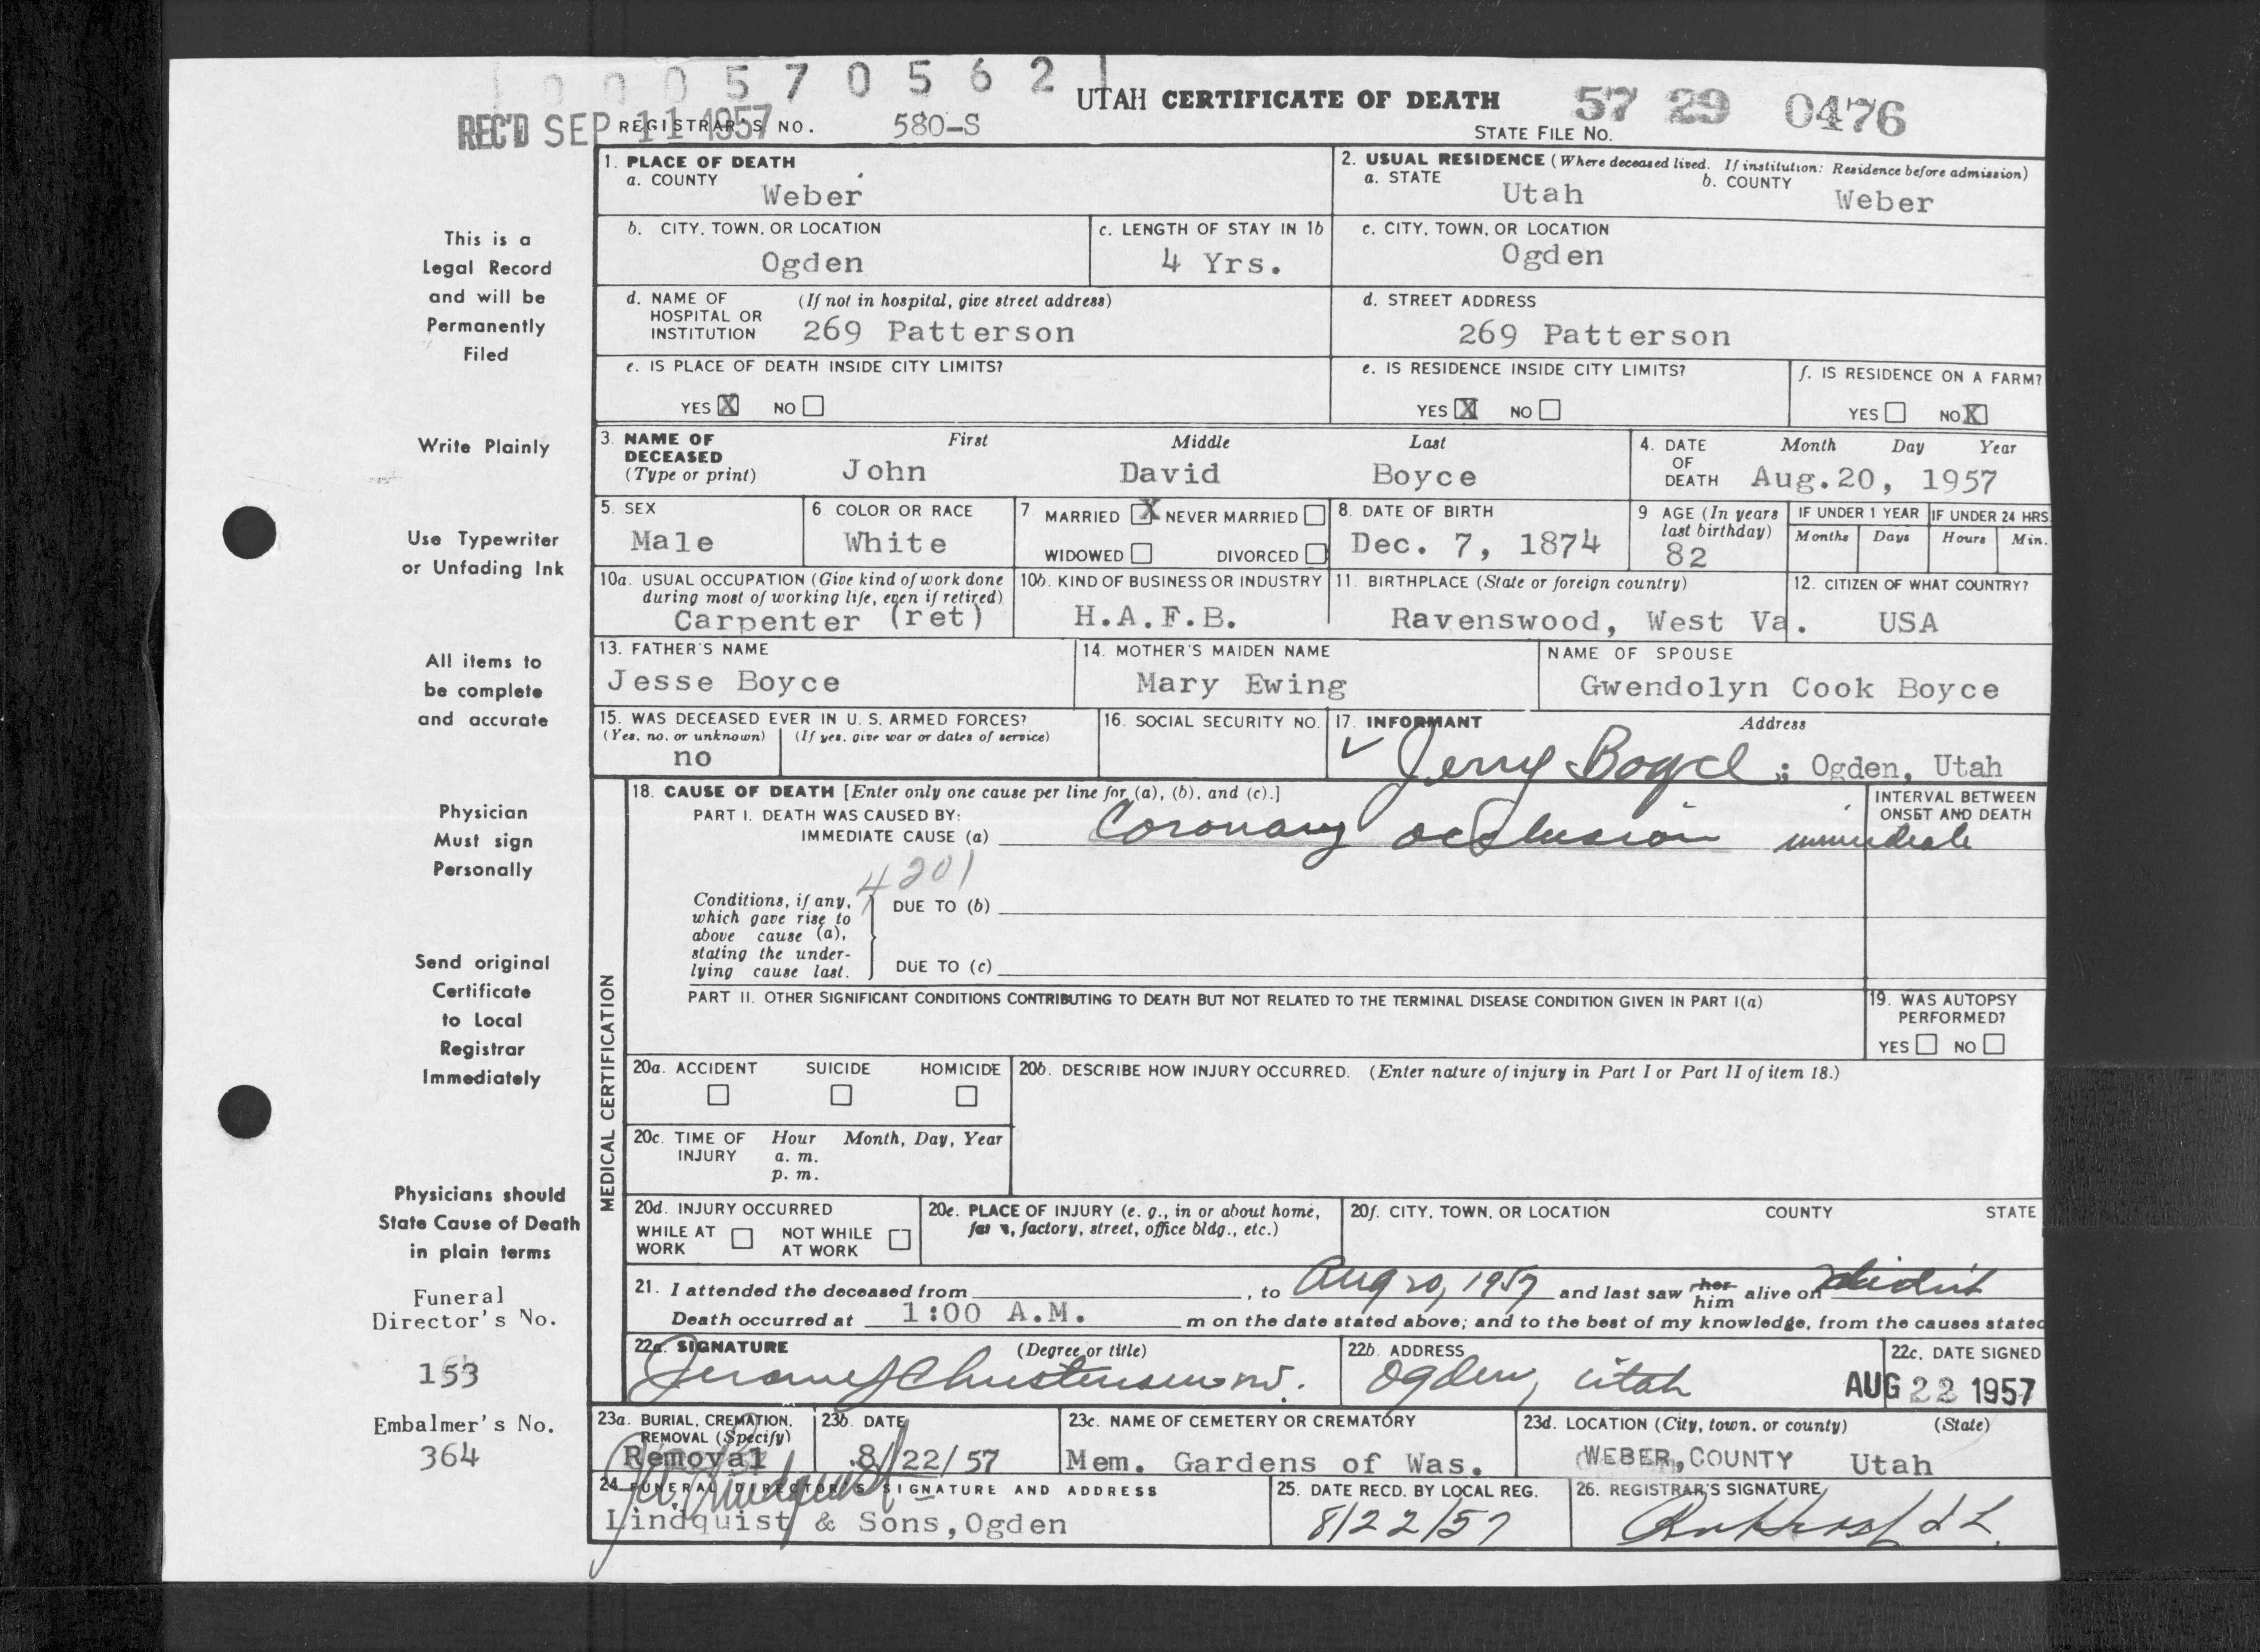 0 0 0 5 7 0 5 6 2
UTAH CERTIFICATE OF DEATH
57 29 0476
REC'D SEP 11 1957
REGISTRAR'S NO. 580-S
STATE FILE NO.
This is a
Legal Record
and will be
Permanently
Filed
Write Plainly
Use Typewriter
or Unfading Ink
All items to
be complete
and accurate
Physician
Must sign
Personally
Send original
Certificate
to Local
Registrar
Immediately
Physicians should
State Cause of Death
in plain terms
Funeral
Director's No.
153
Embalmer's No.
364
1. PLACE OF DEATH
a. COUNTY
Weber
2. USUAL RESIDENCE (Where deceased lived. If institution: Residence before admission)
a. STATE Utah b. COUNTY Weber
b. CITY, TOWN, OR LOCATION
Ogden
c. LENGTH OF STAY IN 1b
4 Yrs.
c. CITY, TOWN, OR LOCATION
Ogden
d. NAME OF (If not in hospital, give street address)
HOSPITAL OR
INSTITUTION 269 Patterson
d. STREET ADDRESS
269 Patterson
e. IS PLACE OF DEATH INSIDE CITY LIMITS?
YES X NO
e. IS RESIDENCE INSIDE CITY LIMITS?
YES X NO
f. IS RESIDENCE ON A FARM?
YES NO X
3. NAME OF First Middle Last
DECEASED
(Type or print) John David Boyce
4. DATE Month Day Year
OF
DEATH Aug.20, 1957
5. SEX
Male
6. COLOR OR RACE
White
7. MARRIED X NEVER MARRIED
WIDOWED DIVORCED
8. DATE OF BIRTH
Dec. 7, 1874
9 AGE (In years
last birthday)
82
IF UNDER 1 YEAR
Months Days
IF UNDER 24 HRS.
Hours Min.
10a. USUAL OCCUPATION (Give kind of work done
during most of working life, even if retired)
Carpenter (ret)
10b. KIND OF BUSINESS OR INDUSTRY
H.A.F.B.
11. BIRTHPLACE (State or foreign country)
Ravenswood, West Va.
12. CITIZEN OF WHAT COUNTRY?
USA
13. FATHER'S NAME
Jesse Boyce
14. MOTHER'S MAIDEN NAME
Mary Ewing
NAME OF SPOUSE
Gwendolyn Cook Boyce
15. WAS DECEASED EVER IN U. S. ARMED FORCES?
(Yes, no, or unknown) (If yes, give war or dates of service)
no
16. SOCIAL SECURITY NO.
17. INFORMANT Address
Jerry Boyce ; Ogden, Utah
MEDICAL CERTIFICATION
18. CAUSE OF DEATH [Enter only one cause per line for (a), (b), and (c).]
PART I. DEATH WAS CAUSED BY:
IMMEDIATE CAUSE (a) Coronary occlusion immediate
INTERVAL BETWEEN
ONSET AND DEATH
4201
Conditions, if any,
which gave rise to
above cause (a),
stating the under-
lying cause last.
DUE TO (b)
DUE TO (c)
PART II. OTHER SIGNIFICANT CONDITIONS CONTRIBUTING TO DEATH BUT NOT RELATED TO THE TERMINAL DISEASE CONDITION GIVEN IN PART I(a)
19. WAS AUTOPSY
PERFORMED?
YES NO
20a. ACCIDENT SUICIDE HOMICIDE
20b. DESCRIBE HOW INJURY OCCURRED. (Enter nature of injury in Part I or Part II of item 18.)
20c. TIME OF Hour Month, Day, Year
INJURY a. m.
p. m.
20d. INJURY OCCURRED
WHILE AT NOT WHILE
WORK AT WORK
20e. PLACE OF INJURY (e. g., in or about home,
farm, factory, street, office bldg., etc.)
20f. CITY, TOWN, OR LOCATION COUNTY STATE
21. I attended the deceased from , to Aug 20, 1957 and last saw her him alive on didn't
Death occurred at 1:00 A.M. m on the date stated above; and to the best of my knowledge, from the causes stated
22a. SIGNATURE (Degree or title)
Christensen M.D.
22b. ADDRESS
Ogden, Utah
22c. DATE SIGNED
AUG 22 1957
23a. BURIAL, CREMATION,
REMOVAL (Specify)
Removal
23b. DATE
8/22/57
23c. NAME OF CEMETERY OR CREMATORY
Mem. Gardens of Was.
23d. LOCATION (City, town, or county) (State)
WEBER, COUNTY Utah
24 FUNERAL DIRECTOR'S SIGNATURE AND ADDRESS
Lindquist & Sons, Ogden
25. DATE RECD. BY LOCAL REG.
8/22/57
26. REGISTRAR'S SIGNATURE